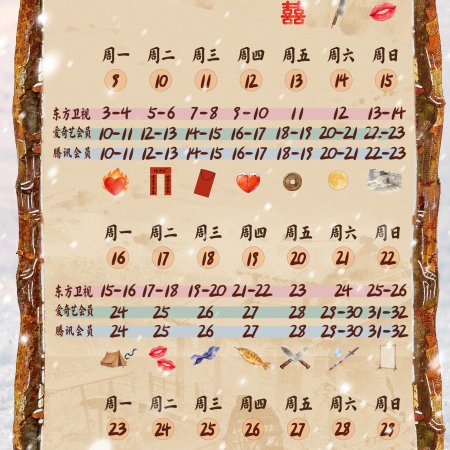 囍
周一 周二 周三 周四 周五 周六 周日
9 10 11 12 13 14 15
东方卫视 3-4 5-6 7-8 9-10 11 12 13-14
爱奇艺会员 10-11 12-13 14-15 16-17 18-19 20-21 22-23
腾讯会员 10-11 12-13 14-15 16-17 18-19 20-21 22-23
周一 周二 周三 周四 周五 周六 周日
16 17 18 19 20 21 22
东方卫视 15-16 17-18 19-20 21-22 23 24 25-26
爱奇艺会员 24 25 26 27 28 29-30 31-32
腾讯会员 24 25 26 27 28 29-30 31-32
周一 周二 周三 周四 周五 周六 周日
23 24 25 26 27 28 29